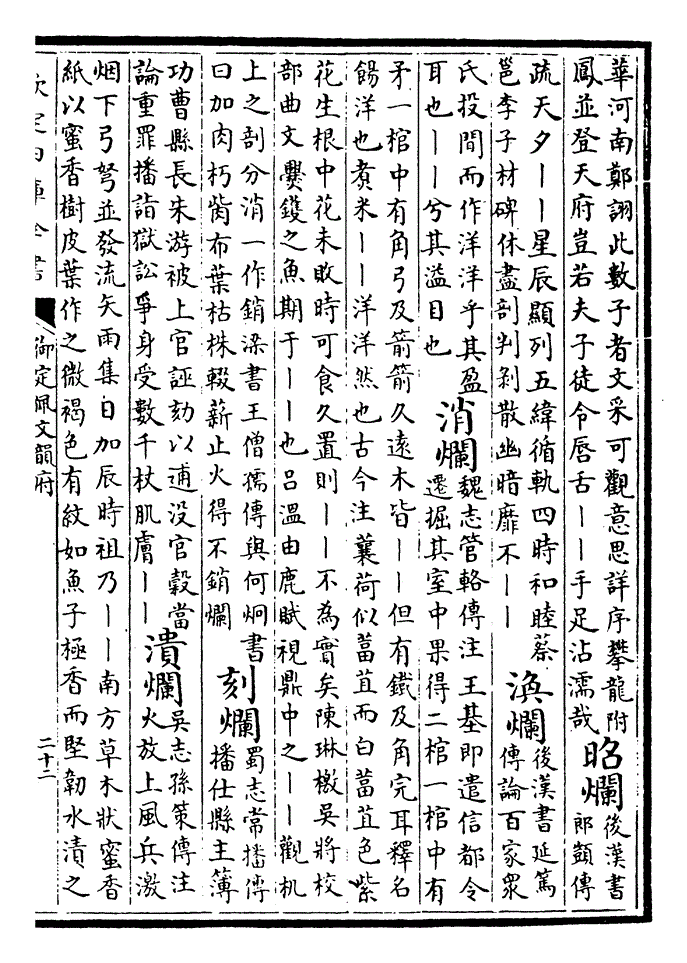 華河南鄭詡此數子者文采可觀意思詳序攀龍附
鳳並登天府豈若夫子徒令唇舌——手足沾濡哉
昭爛
後漢書
郎顗傳
疏天夕——星辰顯列五緯循軌四時和睦蔡
邕李子材碑休盡剖判剝散幽暗靡不——
渙爛
後漢書延篤
傳論百家衆
氏投閒而作洋洋乎其盈
耳也——兮其溢目也
消爛
魏志管輅傳注王基即遣信都令
遷掘其室中果得二棺一棺中有
矛一棺中有角弓及箭箭久遠木皆——但有鐵及角完耳釋名
餳洋也煑米——洋洋然也古今注蘘荷似葍苴而白葍苴色紫
花生根中花未敗時可食久置則——不為實矣陳琳檄吳將校
部曲文爨鑊之魚期于——也呂溫由鹿賦視鼎中之——觀机
上之剖分消一作銷梁書王僧孺傳與何炯書
曰加肉朽胔布葉枯株輟薪止火得不銷爛
刻爛
蜀志常播傳
播仕縣主簿
功曹縣長朱游被上官誣劾以逋没官穀當
論重罪播詣獄訟爭身受數千杖肌膚——
潰爛
吳志孫策傳注
火放上風兵激
烟下弓弩並發流矢雨集日加辰時祖乃——南方草木狀蜜香
紙以蜜香樹皮葉作之微褐色有紋如魚子極香而堅韌水漬之
欽定四庫全書
御定佩文韻府
二十二